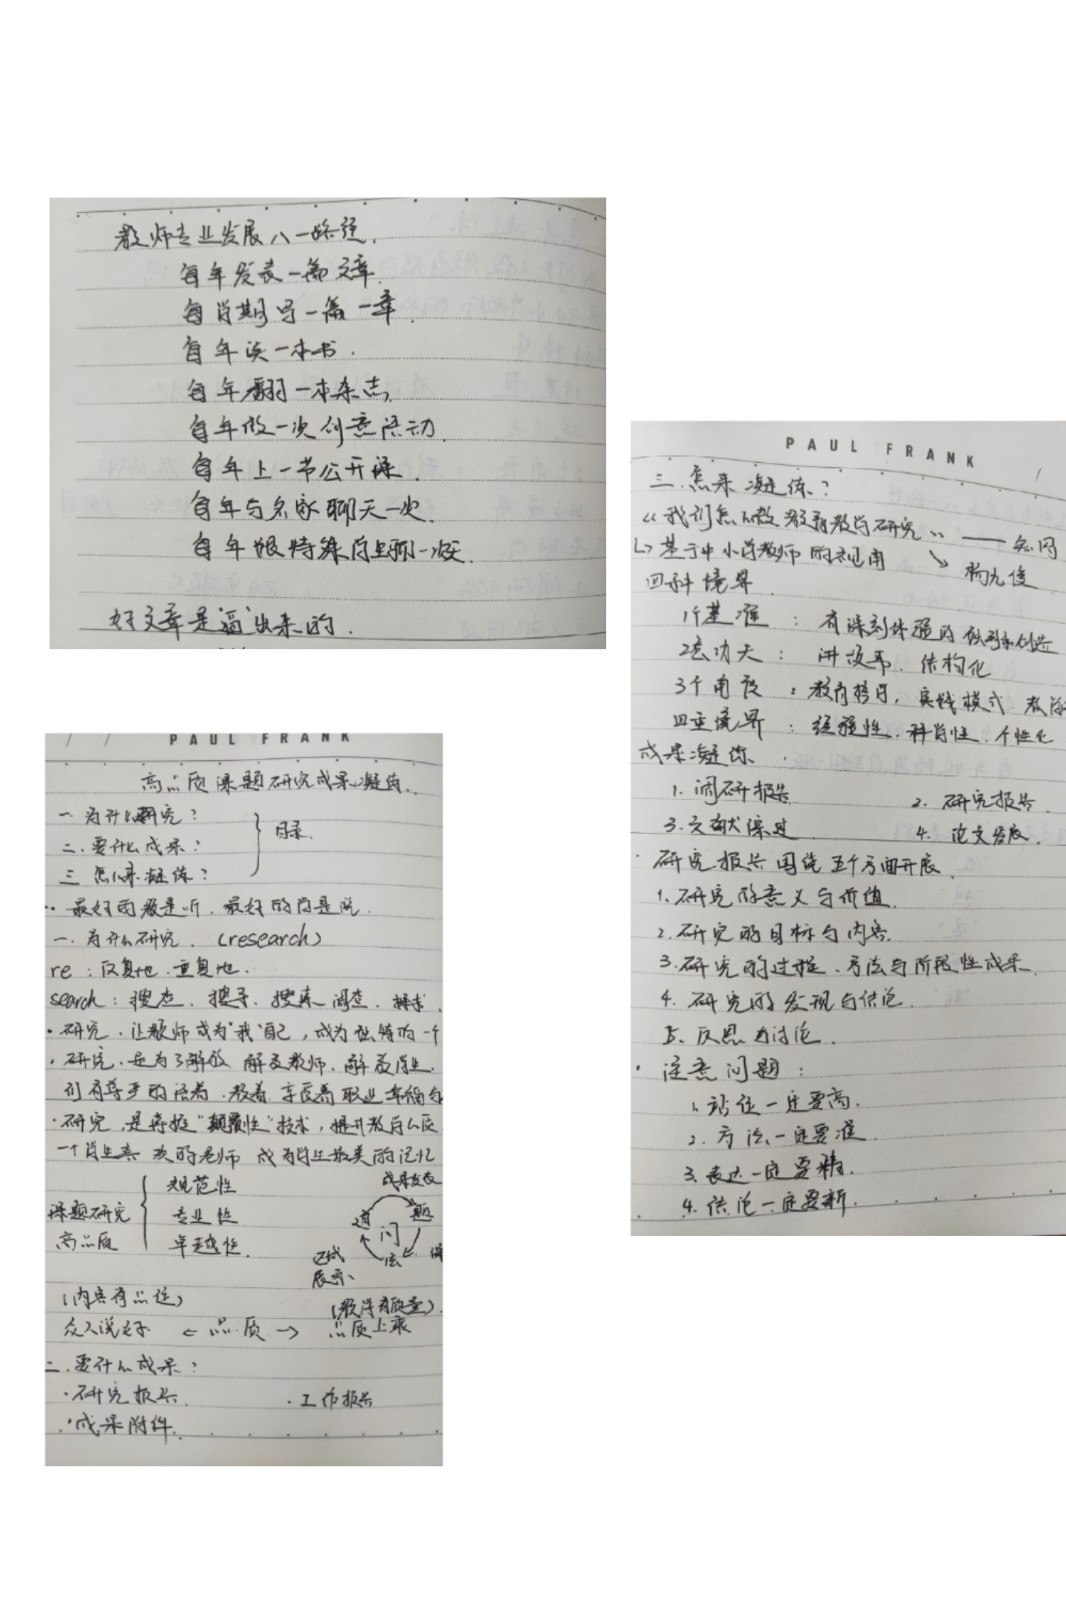 教师专业发展八一路径.
每年发表一篇文章.
每学期写一篇一章.
每年读一本书.
每年翻一本杂志.
每年做一次创意活动.
每年上一节公开课.
每年与名家聊天一次.
每年跟特殊学生聊一次.
好文章是逼出来的.
PAUL FRANK
高品质课题研究成果凝练.
一.为什么研究?
二.要什么成果? 目录.
三.怎么来凝练?
·最好的教是听.最好的学是说.
一.为什么研究.(research)
re:反复地.重复地.
search:搜查.搜寻.搜索.调查.探求.
·研究.让教师成为"我"自己,成为独特的一个
·研究.是为了解放 解放教师.解放学生.
们有尊严的活着.教着.享受着职业幸福与
·研究.是再按"颠覆性"技术,提升教学
一个学生喜欢的老师 成为学生最美的记忆
规范性
课题研究 专业性
高品质 卓越性.
成果发表
道 问 题
法
达成
展示
(内容有品位) (教学有质量).
众人说好 ← 品质 → 品质上乘
二.要什么成果?
·研究报告. ·工作报告
·成果附件.
PAUL FRANK
三.怎来凝练?
《我们怎么做教育教学研究》—— 知网
↳基于中小学教师的视角 ↘ 杨九俊
四种境界
1个基准:有深刻体验的
2套功夫:讲故事.结构化
3个角度:教育格局,实践模式
四重境界:经验性.科学性.个性化
成果凝练.
1.调研报告 2.研究报告.
3.文献综述 4.论文发表.
·研究报告围绕五个方面开展.
1.研究的意义与价值.
2.研究的目标与内容.
3.研究的过程.方法与阶段性成果.
4.研究的发现与结论.
5.反思与讨论.
·注意问题:
1.站位一定要高.
2.方法一定要准.
3.表达一定要精.
4.结论一定要新.